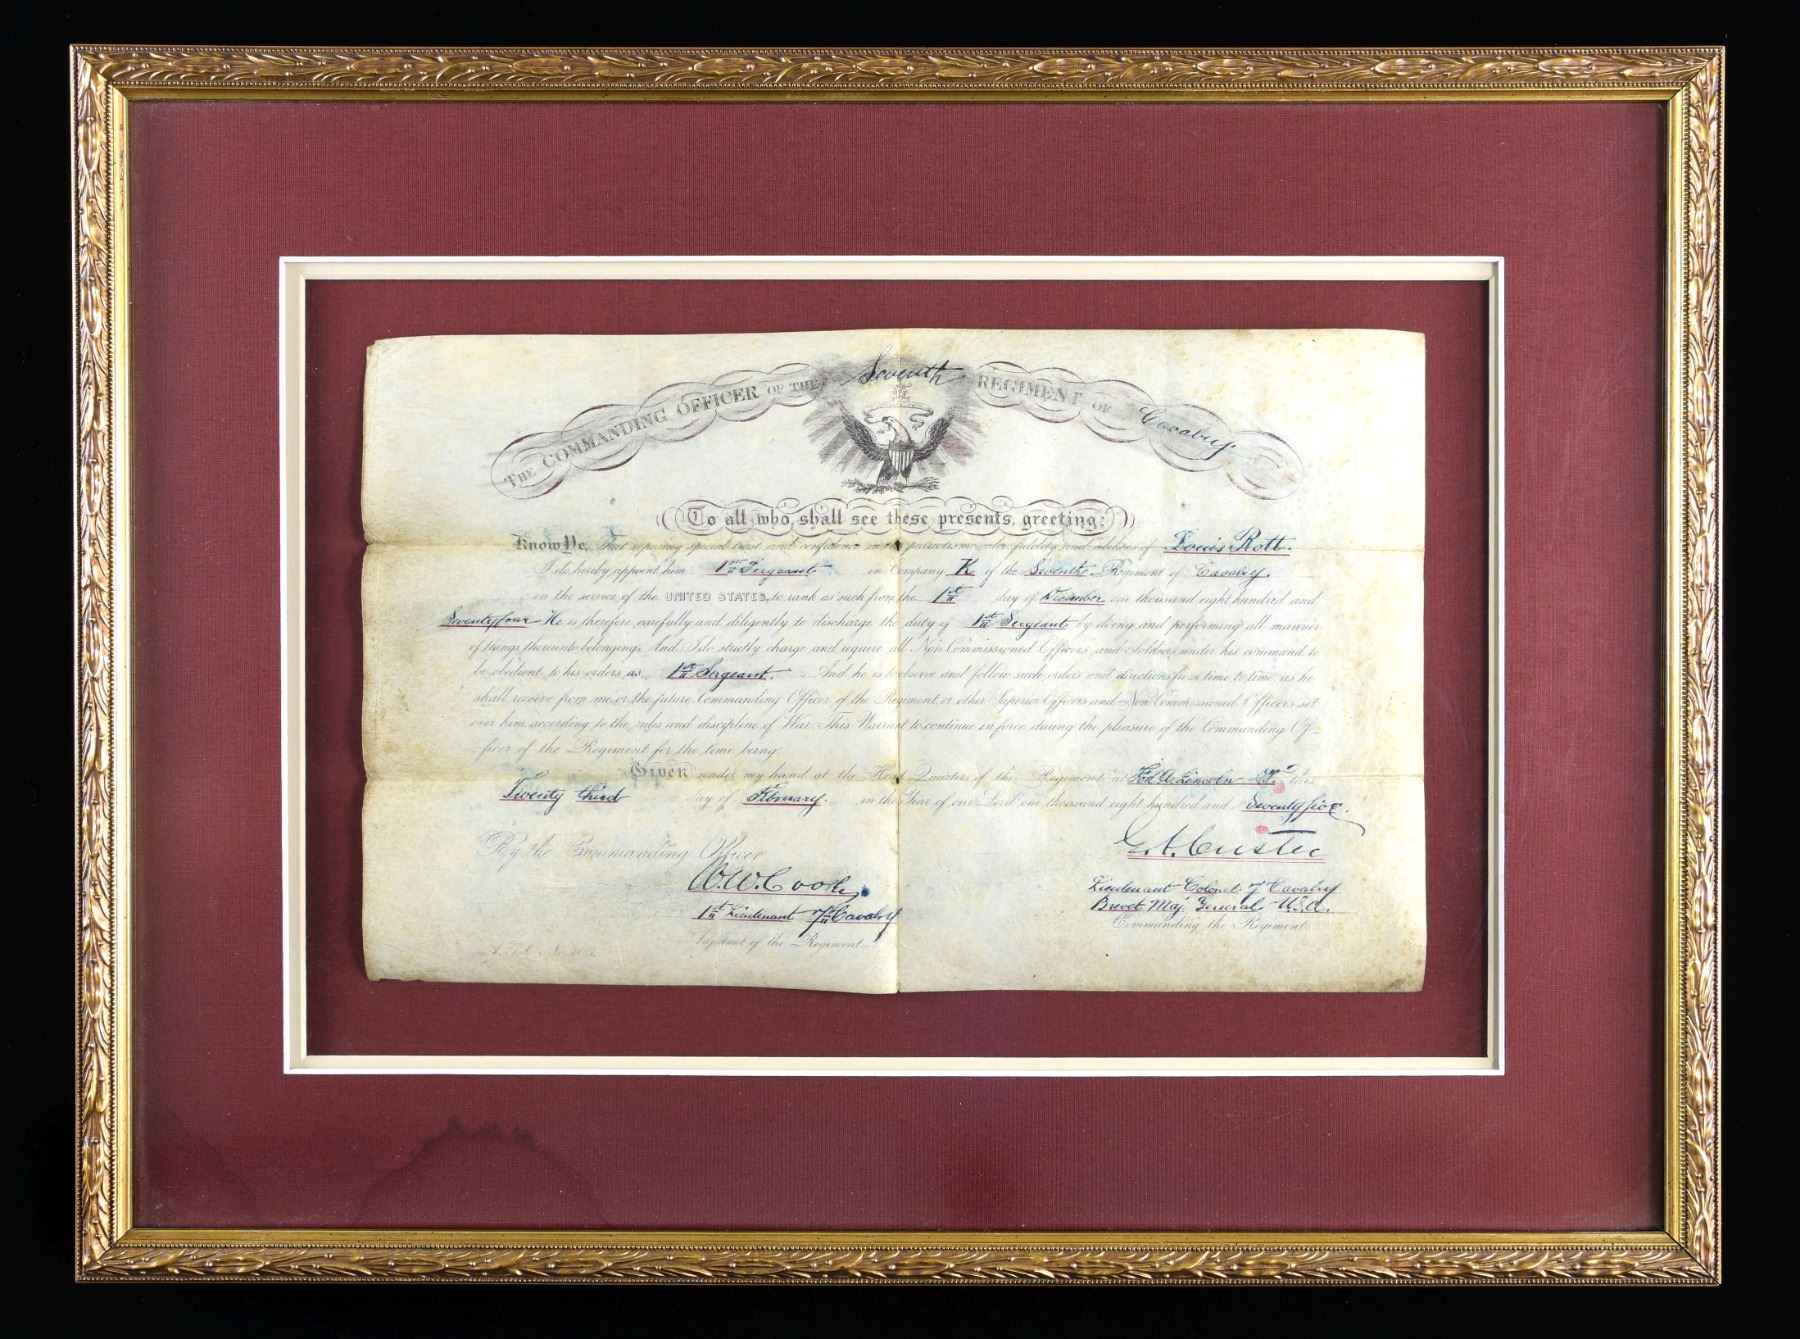 THE COMMANDING OFFICER OF THE Seventh REGIMENT OF Cavalry.
To all who shall see these presents, greeting:
Know Ye, That reposing special trust and confidence in the patriotism, fidelity and abilities of Louis Rott.
I do hereby appoint him 1st Sergeant in Company K of the Seventh Regiment of Cavalry.
in the service of the UNITED STATES, to rank as such from the 1st day of December one thousand eight hundred and
Seventy four He is therefore carefully and diligently to discharge the duty of 1st Sergeant by doing and performing all manner
of things thereunto belonging. And I do strictly charge and require all Non Commissioned Officers and Soldiers under his command to
be obedient to his orders as 1st Sergeant. And he is to observe and follow such orders and directions from time to time, as he
shall receive from me, or the future Commanding Officer of the Regiment, or other Superior Officers and Non Commissioned Officers set
over him, according to the rules and discipline of War. This Warrant to continue in force during the pleasure of the Commanding Of-
ficer of the Regiment for the time being.
Given under my hand at the Head Quarters of the Regiment at Fort A. Lincoln D.T. this
Twenty third day of February. in the Year of our Lord one thousand eight hundred and Seventy five.
By the Commanding Officer
G. A. Custer
W. W. Cooke
Lieutenant Colonel 7 Cavalry.
1st Lieutenant 7th Cavalry
Brevet Maj. General U.S.A.
Commanding the Regiment
Adjutant of the Regiment.
A.G.O. No.